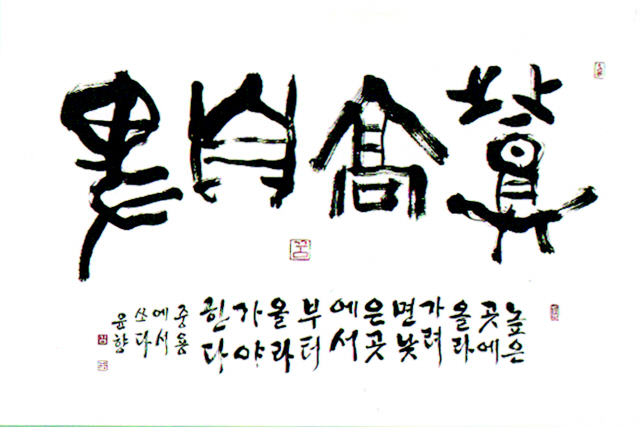 登高自卑
높은
곳에
올라
가려
면낮
은곳
에서
부터
올라
가야
한다
중용
에서
쓰다
윤향